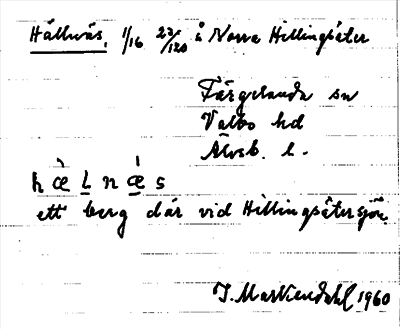 Hällnäs, 1/16 23/120 å Norra Hillingsäter
Färgelanda sn
Valbo hd
Älvsb. l.
hæ̀L̲nǽ̲s
ett berg där vid Hillingsätersjön.
J. Markendahl 1960